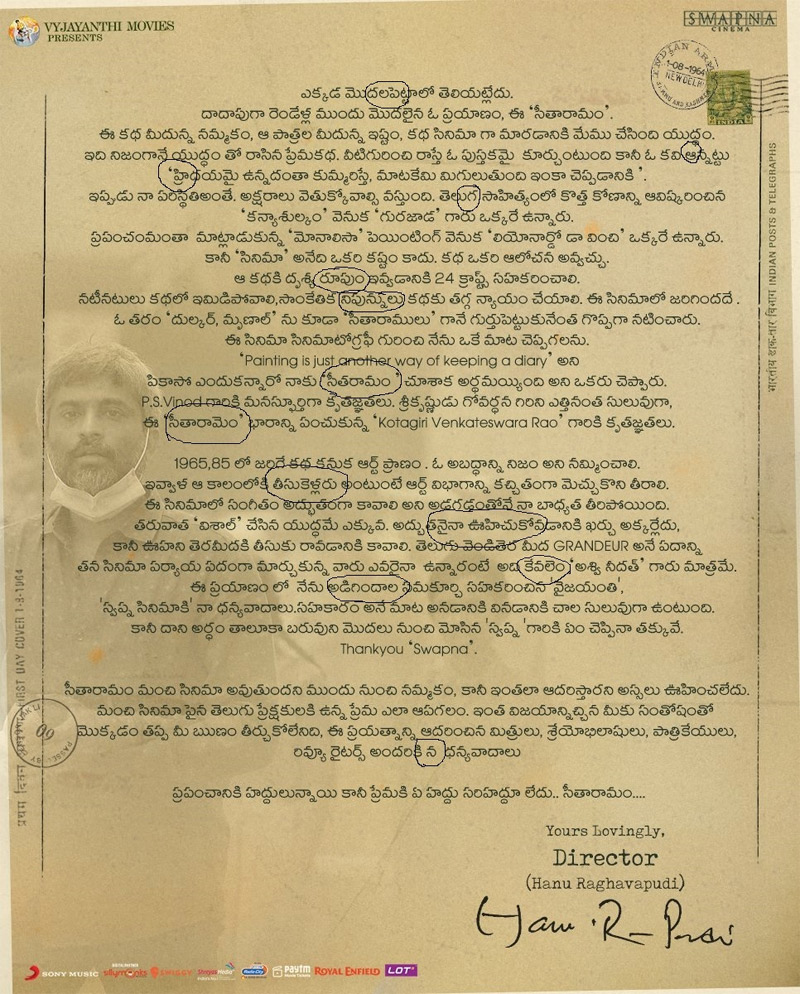 VYJAYANTHI MOVIES
PRESENTS
SWAPNA
CINEMA
INDIAN ARMY
1-08-1964
NEW DELHI
INDIA
ఎక్కడ మొదలపెట్టాలో తెలియట్లేదు.
దాదాపుగా రెండేళ్ల ముందు మొదలైన ఓ ప్రయాణం, ఈ ‘సీతారామం’.
ఈ కథ మీదున్న నమ్మకం, ఆ పాత్రల మీదున్న ఇష్టం, కథ సినిమా గా మారడానికి మేము చేసింది యుద్ధం.
ఇది నిజంగానే యుద్ధం తో రాసిన ప్రేమకథ. వీటిగురించి రాస్తే ఓ పుస్తకమై కూర్చుంటుంది కానీ ఓ కవి ఆన్నట్టు
‘హ్రిధయమై ఉన్నదంతా కుమ్మరిస్తే, మాటకేమి మిగులుతుంది ఇంకా చెప్పడానికి ’.
ఇప్పుడు నా పరిస్థితిఅంతే. అక్షరాలు వెతుక్కోవాల్సి వస్తుంది. తెలుగ సాహిత్యంలో కొత్త కోణాన్ని ఆవిష్కరించిన
‘కన్యాశుల్కం’ వెనుక ‘గురజాడ’ గారు ఒక్కరే ఉన్నారు.
ప్రపంచంమంతా మాట్లాడుకున్న ‘మోనాలిసా’ పెయింటింగ్ వెనుక ‘లియోనార్డో డా వించి’ ఒక్కరే ఉన్నారు.
కానీ ‘సినిమా’ అనేది ఒకరి కష్టం కాదు. కథ ఒకరి ఆలోచన అవ్వచ్చు.
ఆ కథకి దృశ్య రూపుం ఇవ్వడానికి 24 క్రాఫ్ట్స్ సహకరించాలి.
నటీనటులు కథలో ఇమిడిపోవాలి,సాంకేతిక నిపున్నులు కథకు తగ్గ న్యాయం చేయాలి. ఈ సినిమాలో జరిగిందదే .
ఓ తరం ‘దుల్కర్, మృణాల్’ ను కూడా ‘సీతారాములు’ గానే గుర్తుపెట్టుకునేంత గొప్పగా నటించారు.
ఈ సినిమా సినిమాటోగ్రఫీ గురించి నేను ఒకే మాట చెప్పగలను.
‘Painting is just another way of keeping a diary’ అని
పికాసో ఎందుకన్నారో నాకు ‘సీతరామం ’ చూశాక అర్థమయ్యింది అని ఒకరు చెప్పారు.
P.S.Vinod గారికి మనస్ఫూర్తిగా కృతజ్ఞతలు. శ్రీకృష్ణుడు గోవర్ధన గిరిని ఎత్తినంత సులువుగా,
ఈ ‘సీతారామెం’ భారాన్ని పంచుకున్న ‘Kotagiri Venkateswara Rao’ గారికి కృతజ్ఞతలు.
1965,85 లో జరిగే కథ కనుక ఆర్ట్ ప్రాణం . ఓ అబద్ధాన్ని నిజం అని నమ్మించాలి.
ఇవ్వాళ ఆ కాలంలోకి తీసుకెళ్లరు అంటుంటే ఆర్ట్ విభాగాన్ని కచ్చితంగా మెచ్చుకొని తీరాలి.
ఈ సినిమాలో సంగీతం అద్భుతంగా కావాలి అని అడగడంతోనే నా బాధ్యత తీరిపోయింది.
తరువాత ‘విశాల్’ చేసిన యుద్ధమే ఎక్కువ. అద్బుతనైనా ఊహించుకోవడానికి ఖర్చు అక్కర్లేదు,
కానీ ఊహని తెరమీదకి తీసుకు రావడానికి కావాలి. తెలుగు వెండితెర మీద GRANDEUR అనే పదాన్ని
తన సినిమా పర్యాయ పదంగా మార్చుకున్న వారు ఎవరైనా ఉన్నారంటే అది కేవలెం ‘అశ్వినీదత్’ గారు మాత్రమే.
ఈ ప్రయాణం లో నేను అడిగిందాల సమకూర్చి సహకరించిన ‘వైజయంతి’,
‘స్వప్న సినిమాకి’ నా ధన్యవాదాలు.సహకారం అనే మాట అనడానికి వినడానికి చాల సులువుగా ఉంటుంది.
కానీ దాని అర్థం తాలూకా బరువుని మొదలు నుంచి మోసిన ‘స్వప్న ’గారికి ఏం చెప్పినా తక్కువే.
Thankyou ‘Swapna’.
సీతారామం మంచి సినిమా అవుతుందని ముందు నుంచి నమ్మకం, కానీ ఇంతలా ఆదరిస్తారని అస్సలు ఊహించలేదు.
మంచి సినిమా పైన తెలుగు ప్రేక్షకులకి ఉన్న ప్రేమ ఎలా ఆపగలం. ఇంత విజయాన్నిచ్చిన మీకు సంతోషంతో
మొక్కడం తప్ప మీ ఋణం తీర్చుకోలేనిది, ఈ ప్రయత్నాన్ని ఆదరించిన మిత్రులు, శ్రేయోభిలాషులు, పాత్రికేయులు,
రివ్యూ రైటర్స్ అందరికి న ధన్యవాదాలు
ప్రపంచానికి హద్దులున్నాయి కానీ ప్రేమకి ఏ హద్దు సరిహద్దూ లేదు.. సీతారామం....
Yours Lovingly,
Director
(Hanu Raghavapudi)
भारतीय डाक-तार विभाग INDIAN POSTS & TELEGRAPHS
प्रथम दिवस आवरण FIRST DAY COVER 1-8-1964
SONY MUSIC
sillymonks
SWIGGY
Radio City
paytm
ROYAL ENFIELD
LOT